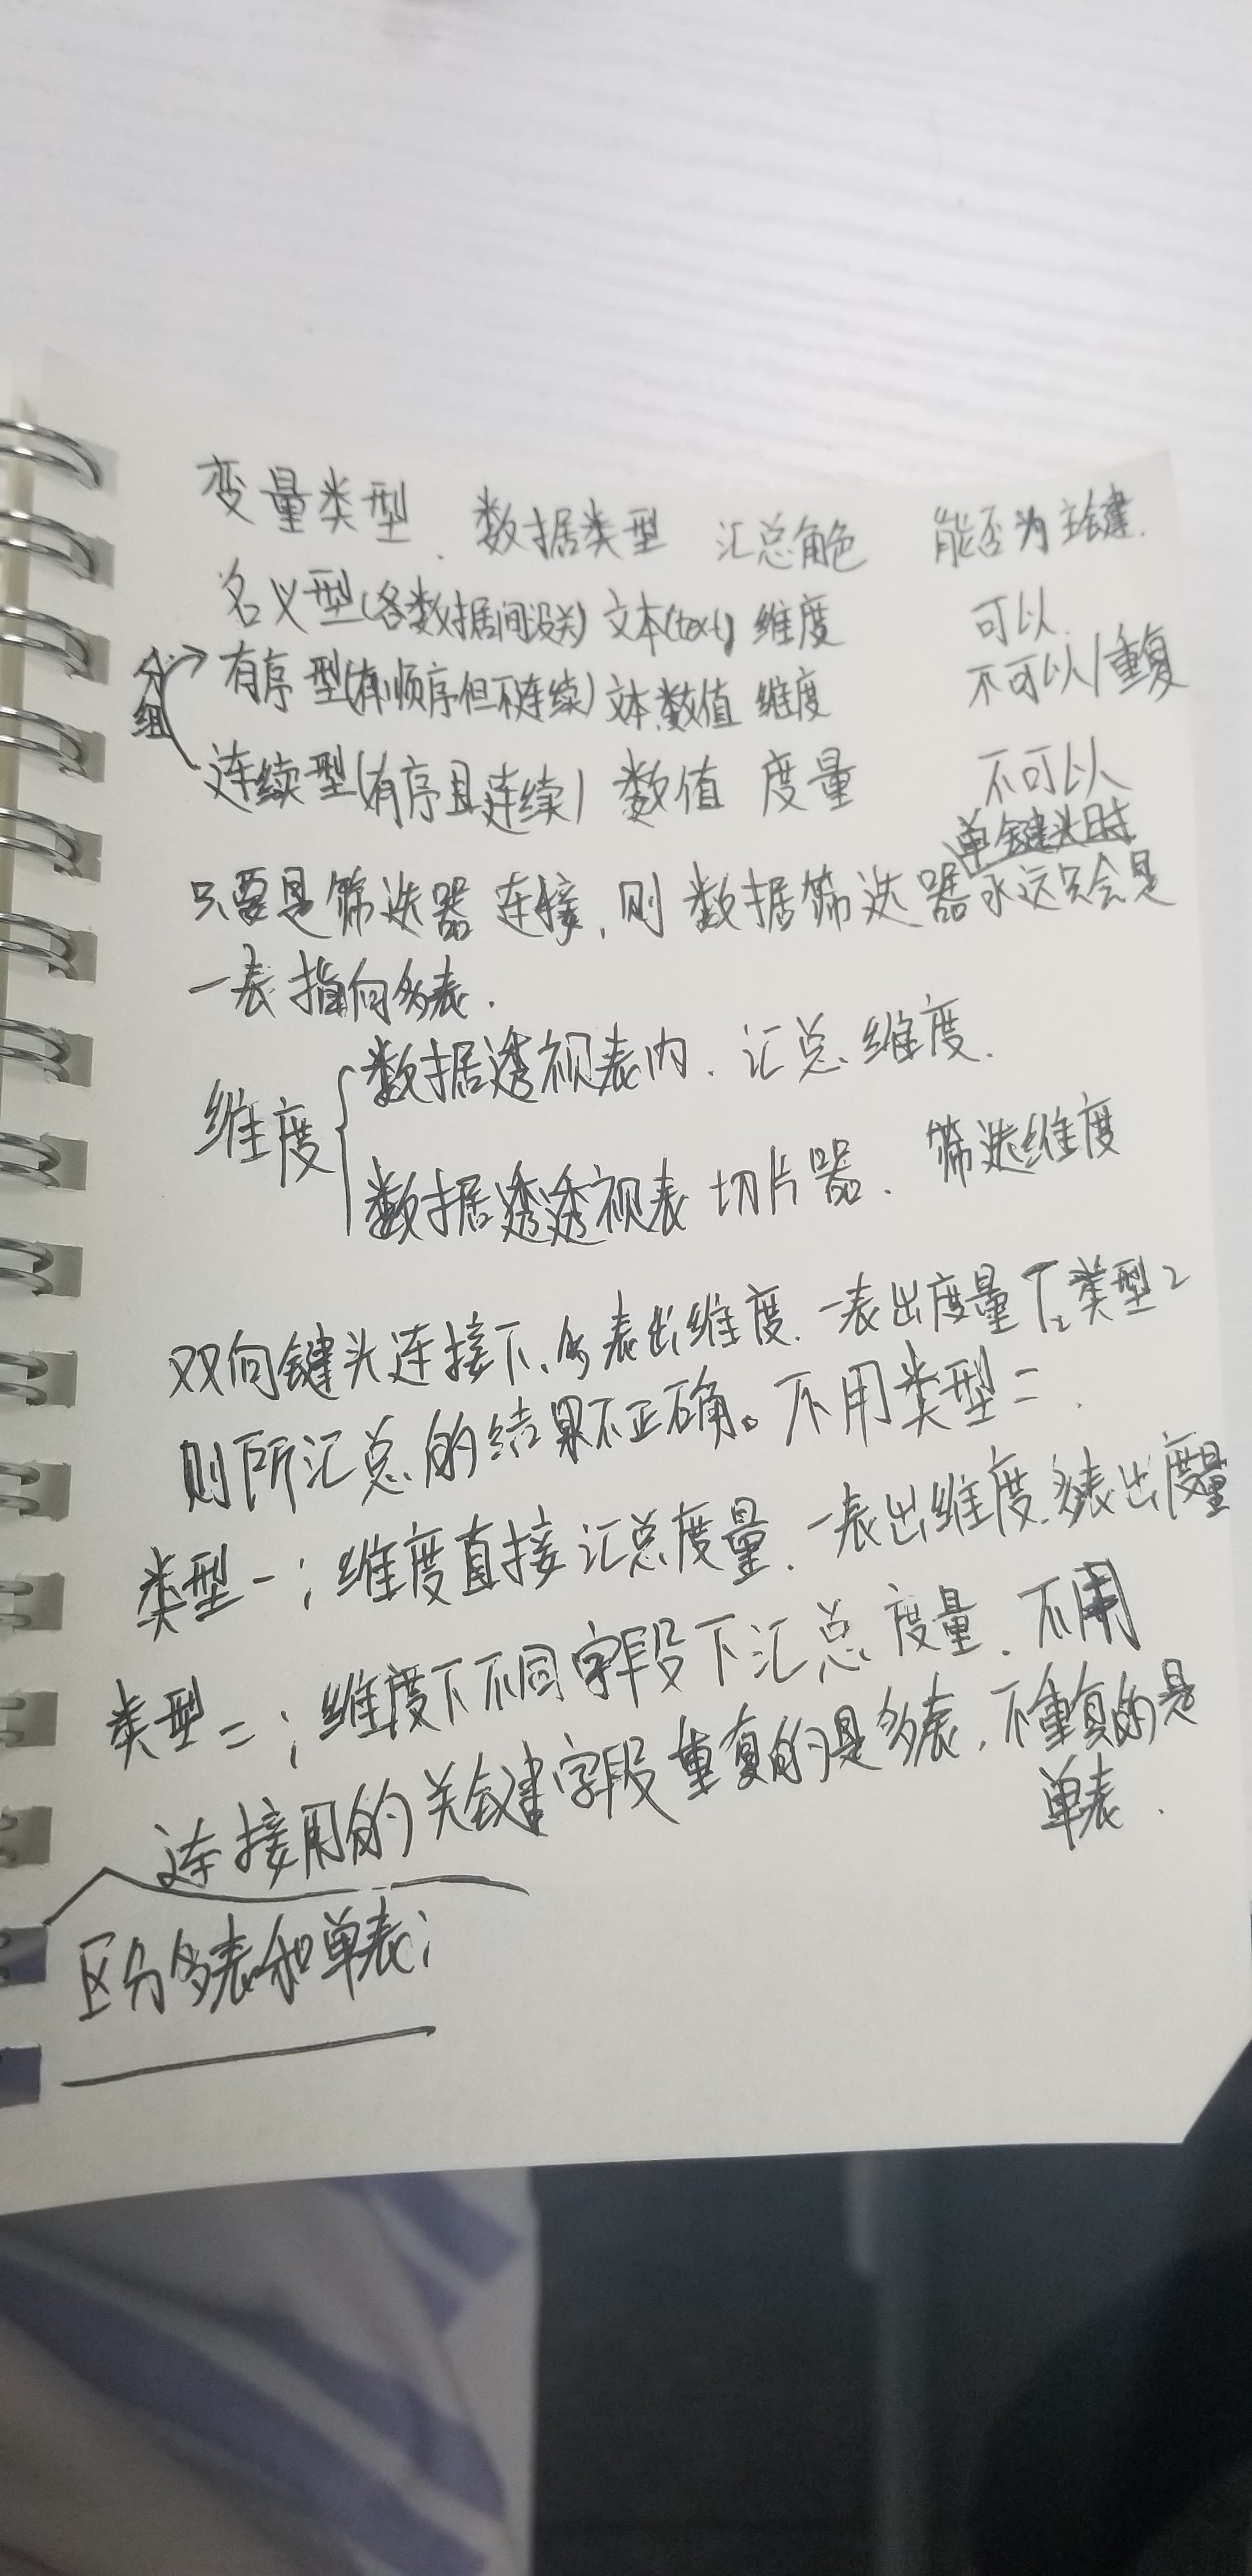 变量类型. 数据类型 汇总角色 能否为主键.
名义型(各数据间没关) 文本(text) 维度 可以.
分组 有序型(有顺序但不连续) 文本.数值 维度 不可以/重复
连续型(有序且连续) 数值 度量 不可以
单键头时
只要是筛选器连接,则数据筛选器永远只会是
一表指向多表.
数据透视表内. 汇总维度.
维度
数据透透视表切片器. 筛选维度
双向键头连接下.多表出维度.一表出度量 类型2
则所汇总的结果不正确。不用类型二.
类型一;维度直接汇总度量.一表出维度.多表出度量
类型二;维度下不同字段下汇总度量.不用
连接用的关键字段重复的是多表.不重复的是
单表.
区分多表和单表;